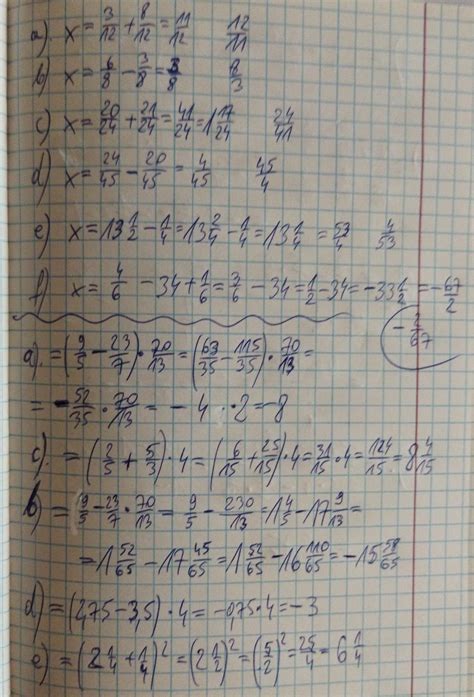 a) x = 3/12 + 8/12 = 11/12   12/11
b) x = 6/8 - 3/8 = 3/8   8/3
c) x = 20/24 + 21/24 = 41/24 = 1 17/24   24/41
d) x = 24/45 - 20/45 = 4/45   45/4
e) x = 13 1/2 - 1/4 = 13 2/4 - 1/4 = 13 1/4 = 53/4   4/53
f) x = 4/6 - 34 + 1/6 = 3/6 - 34 = 1/2 - 34 = -33 1/2 = -67/2
-2/67
a) = (9/5 - 23/7) · 70/13 = (63/35 - 115/35) · 70/13 =
= -52/35 · 70/13 = -4 · 2 = -8
c) = (2/5 + 5/3) · 4 = (6/15 + 25/15) · 4 = 31/15 · 4 = 124/15 = 8 4/15
b) = 9/5 - 23/7 · 70/13 = 9/5 - 230/13 = 1 4/5 - 17 9/13 =
= 1 52/65 - 17 45/65 = 1 52/65 - 16 110/65 = -15 58/65
d) = (2,75 - 3,5) · 4 = -0,75 · 4 = -3
e) = (2 1/4 + 1/4)² = (2 1/2)² = (5/2)² = 25/4 = 6 1/4